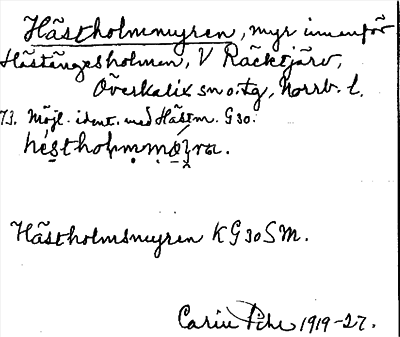 Hästholmmyren, myr innanför
Hästängesholmen, V Räcktjärv,
Överkalix sn o. tg, Norrb. l.
73. Möjl. ident. med Hästm. G30.
Hästholmsmyren KG30SM.
Carin Pihl 1919-27.